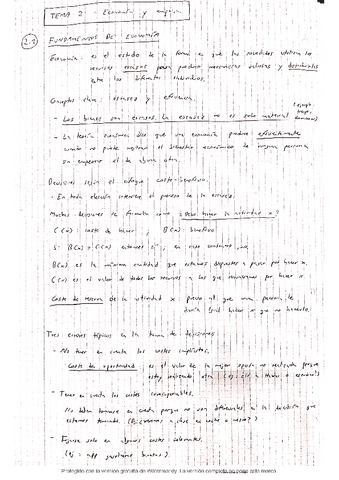 TEMA 2: Economía y empresa
2.1 FUNDAMENTOS DE ECONOMÍA
Economía: es el estudio de la forma en que las sociedades utilizan los
recursos escasos para producir mercancías valiosas y distribuirlas
entre los diferentes individuos.
Conceptos clave: escasez y eficiencia.
- Los bienes son escasos. La escasez no es solo material
- La teoría económica dice que una economía produce eficientemente
cuando no puede mejorar el bienestar económico de ninguna persona
sin empeorar el de alguna otra.
Decisiones según el enfoque coste-beneficio.
- En toda elección interviene el proceso de la escasez.
Muchas decisiones se formulan como ¿Debo hacer la actividad x?
C(x): coste de hacer, B(x): beneficio
Si B(x) > C(x) estamos , en caso contrario, no.
B(x) es la máxima cantidad que estamos dispuestos a pagar por hacer x,
C(x) es el valor de todos los recursos a los que renunciamos por hacer x
Coste de reserva de la actividad x: precio al que una persona le
daría igual hacer x que no hacerlo.
Tres errores típicos en la toma de decisiones
- No tener en cuenta los costes implícitos.
Coste de oportunidad: es el valor de la mejor opción no realizada porque
estoy realizando otra
- Tener en cuenta los costes irrecuperables.
No deben tomarse en cuenta porque no son diferenciales a la decisión que
estamos tomando.
- Fijarse solo en algunos costes relevantes.
Protegido con la versión gratuita de Watermarkly. La versión completa no pone esta marca.